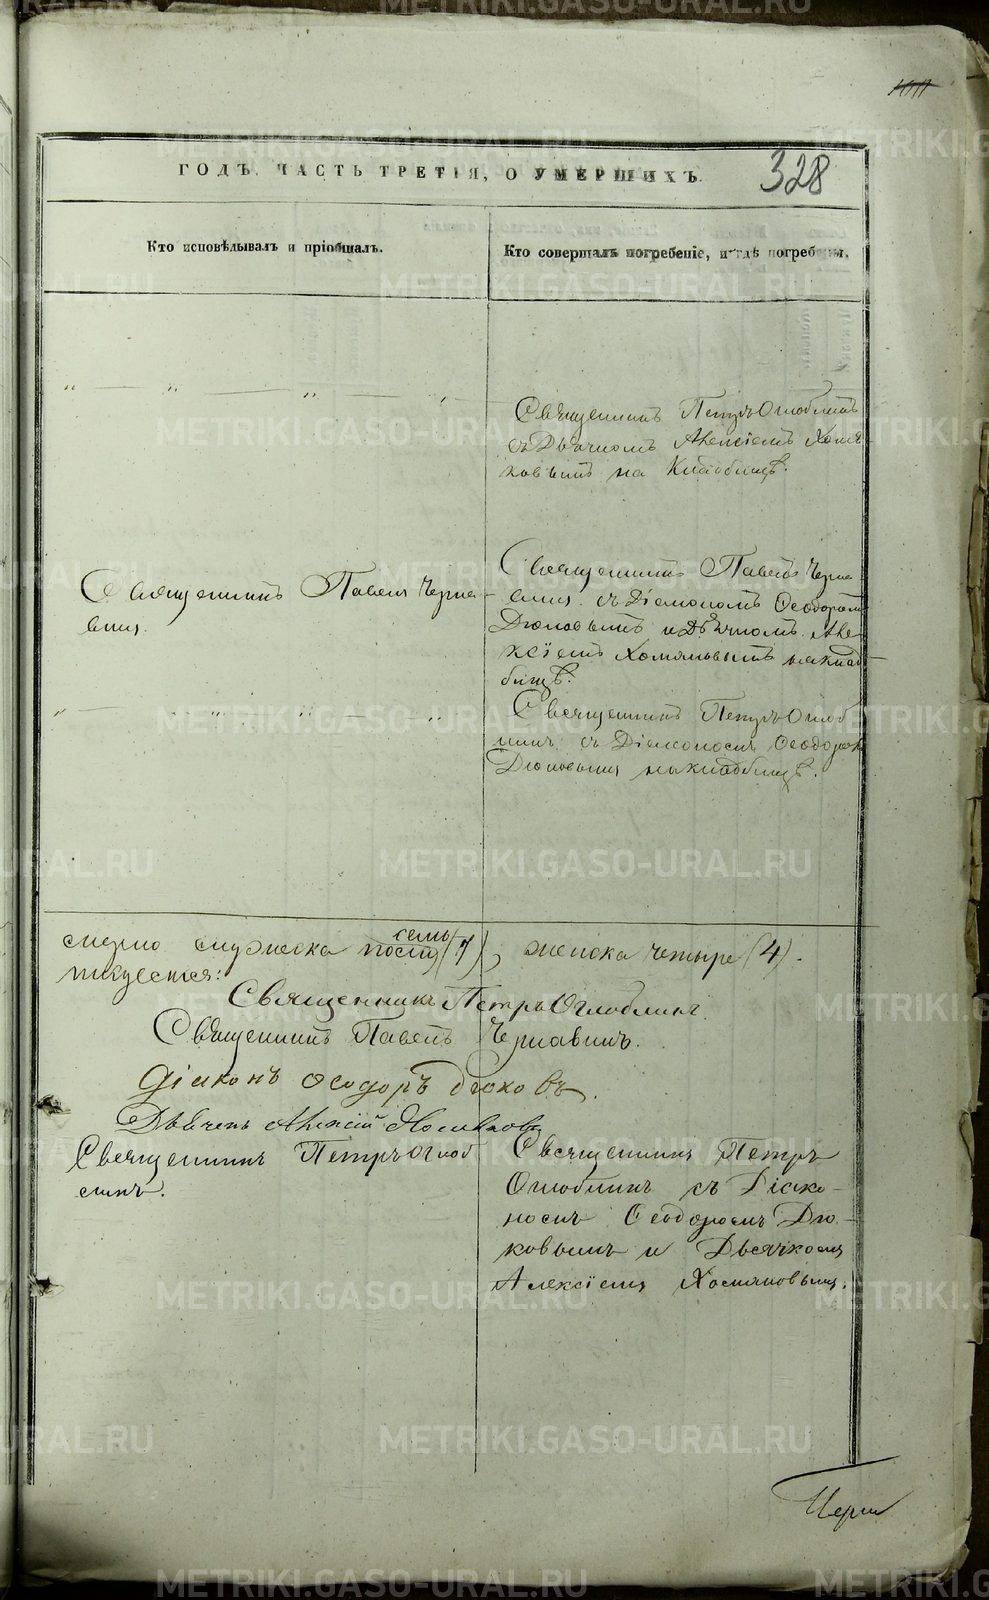 328
ГОДЪ. ЧАСТЬ ТРЕТІЯ, О УМЕРШИХЪ.
Кто исповѣдывалъ и пріобщалъ.
Кто совершалъ погребеніе, и гдѣ погребены.
Священникъ Петръ Оглоблинъ
съ Дьячкомъ Алексіемъ Хомя-
ковымъ на Кладбищѣ.
Священникъ Павелъ Черна-
винъ.
Священникъ Павелъ Черна-
винъ съ Діакономъ Ѳеодоромъ
Дюковымъ и Дьячкомъ Але-
ксіемъ Хомяковымъ на клад-
бищѣ.
Священникъ Петръ Оглоб-
линъ съ Діакономъ Ѳеодоромъ
Дюковымъ на кладбищѣ.
семь
мужеска (7), женска четыре (4).
Священникъ Петръ Оглоблинъ.
Священникъ Павелъ Чернавинъ.
Діаконъ Ѳеодоръ Дюковъ.
Дьячекъ Алексій Хомяковъ
Священникъ Петръ Оглоб-
линъ.
Священникъ Петръ
Оглоблинъ съ Діако-
номъ Ѳеодоромъ Дю-
ковымъ и Дьячкомъ
Алексіемъ Хомяковымъ.
METRIKI.GASO-URAL.RU